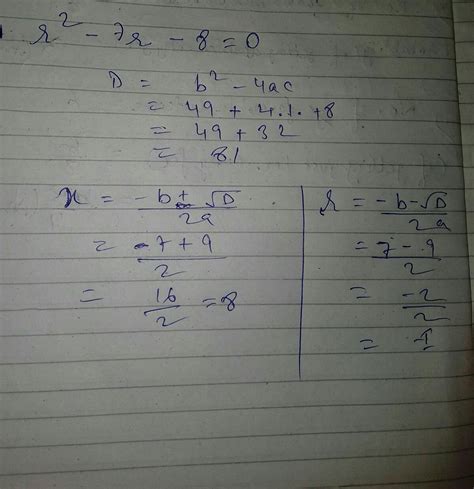 x² - 7x - 8 = 0
D = b² - 4ac
= 49 + 4.1.+8
= 49 + 32
= 81
x = -b ± √D / 2a
= -7 + 9 / 2
= 16 / 2 = 8
x = -b - √D / 2a
= 7 - 9 / 2
= -2 / 2
= 1